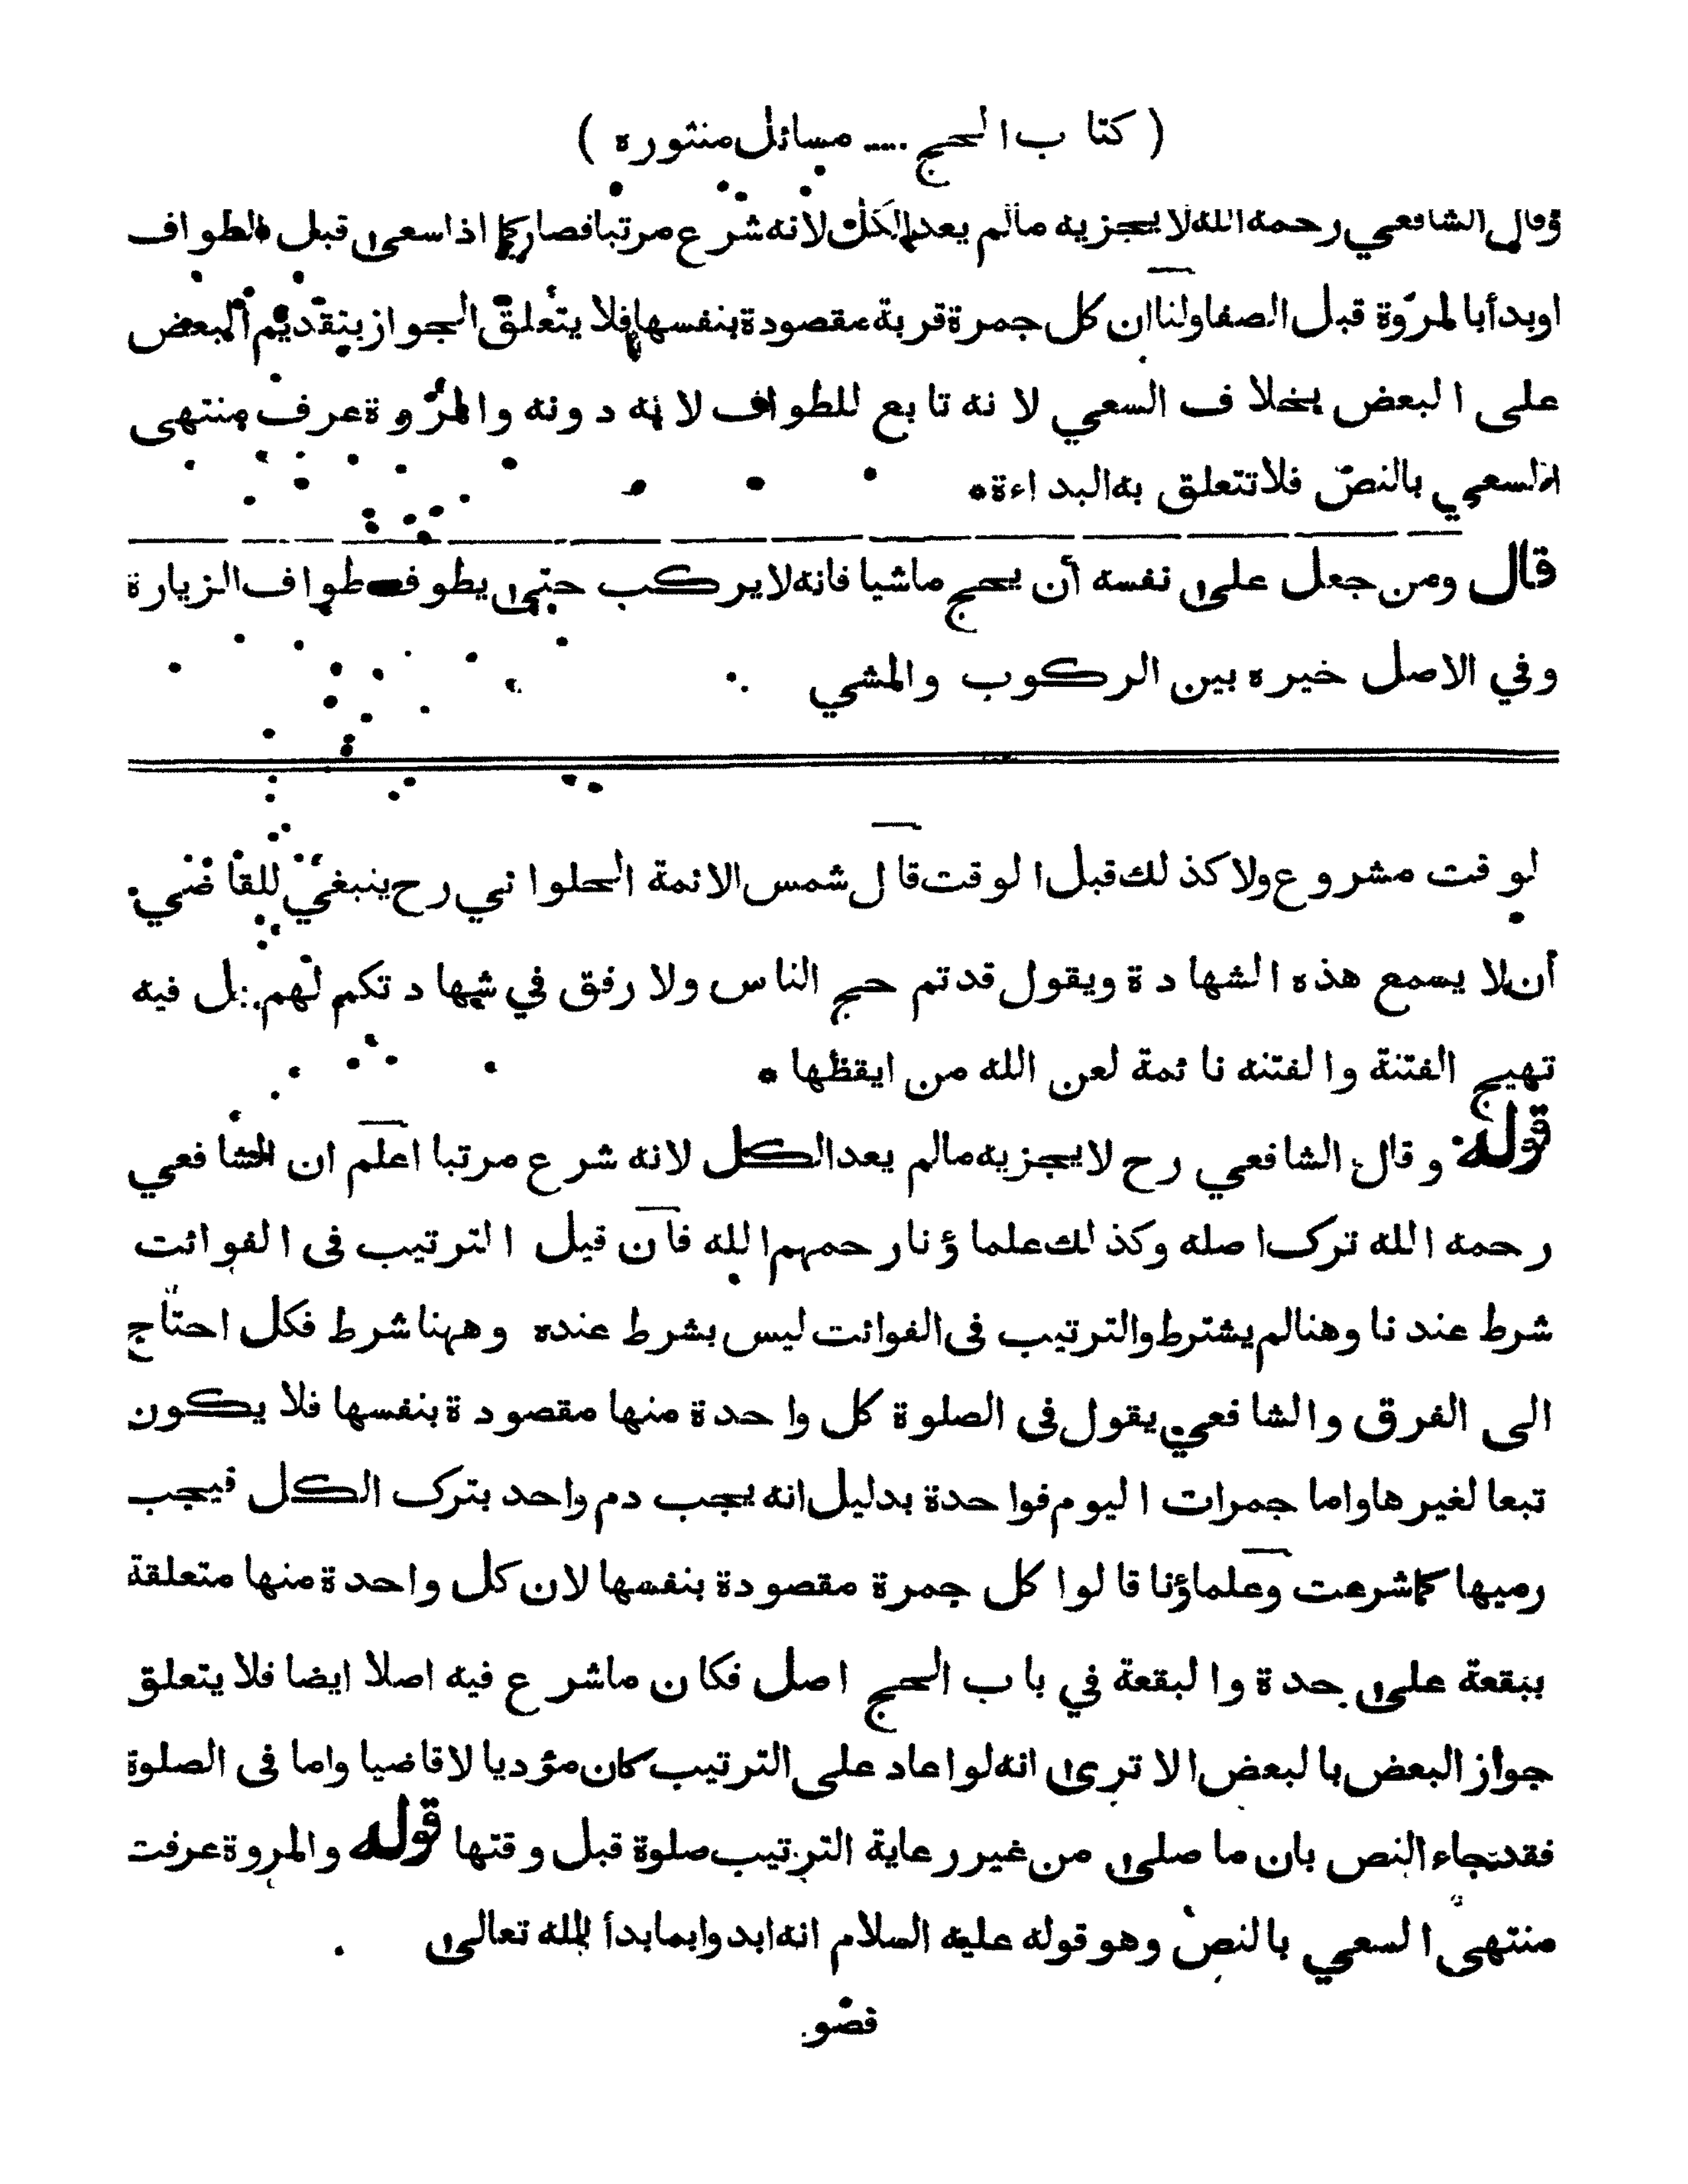 ( كتاب الحج ..... مسائل منثوره )
وقال الشافعي رحمه الله لا يجزيه مالم يعد الكل لانه شرع مرتبا فصار كما اذا سعى قبل الطواف
اوبدأ بالمروة قبل الصفا ولنا ان كل جمرة قربة مقصودة بنفسها فلا يتعلق الجواز بتقديم البعض
على البعض بخلاف السعي لانه تابع للطواف لانه دونه والمروة عرف منتهى
السعي بالنص فلا تتعلق به البداءة *
قال ومن جعل على نفسه أن يحج ماشيا فانه لا يركب حتى يطوف طواف الزيارة
وفي الاصل خيره بين الركوب والمشي
لوقت مشروع ولا كذلك قبل الوقت قال شمس الائمة الحلواني رح ينبغي للقاضي
أن لا يسمع هذه الشهادة ويقول قد تم حج الناس ولا رفق في شهادتكم لهم بل فيه
تهييج الفتنة والفتنه نائمة لعن الله من ايقظها *
قوله وقال الشافعي رح لا يجزيه مالم يعد الكل لانه شرع مرتبا اعلم ان الشافعي
رحمه الله ترك اصله وكذلك علماؤنا رحمهم الله فان قيل الترتيب فى الفوائت
شرط عندنا وهنا لم يشترط والترتيب فى الفوائت ليس بشرط عنده وههنا شرط فكل احتاج
الى الفرق والشافعي يقول فى الصلوة كل واحدة منها مقصودة بنفسها فلا يكون
تبعا لغيرها واما جمرات اليوم فواحدة بدليل انه يجب دم واحد بترك الكل فيجب
رميها كما شرعت وعلماؤنا قالوا كل جمرة مقصودة بنفسها لان كل واحدة منها متعلقة
ببقعة على حدة والبقعة في باب الحج اصل فكان ماشرع فيه اصلا ايضا فلا يتعلق
جواز البعض بالبعض الا ترى انه لو اعاد على الترتيب كان مؤديا لا قاضيا واما فى الصلوة
فقد جاء النص بان ما صلى من غير رعاية الترتيب صلوة قبل وقتها قوله والمروة عرفت
منتهى السعي بالنص وهو قوله عليه السلام انه ابدوا بما بدأ الله تعالى